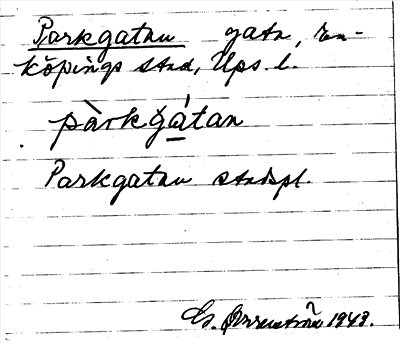 Parkgatan gata, En-
köpings stad, Ups. l.
pàrkgátan
Parkgatan stadspl.
1943.